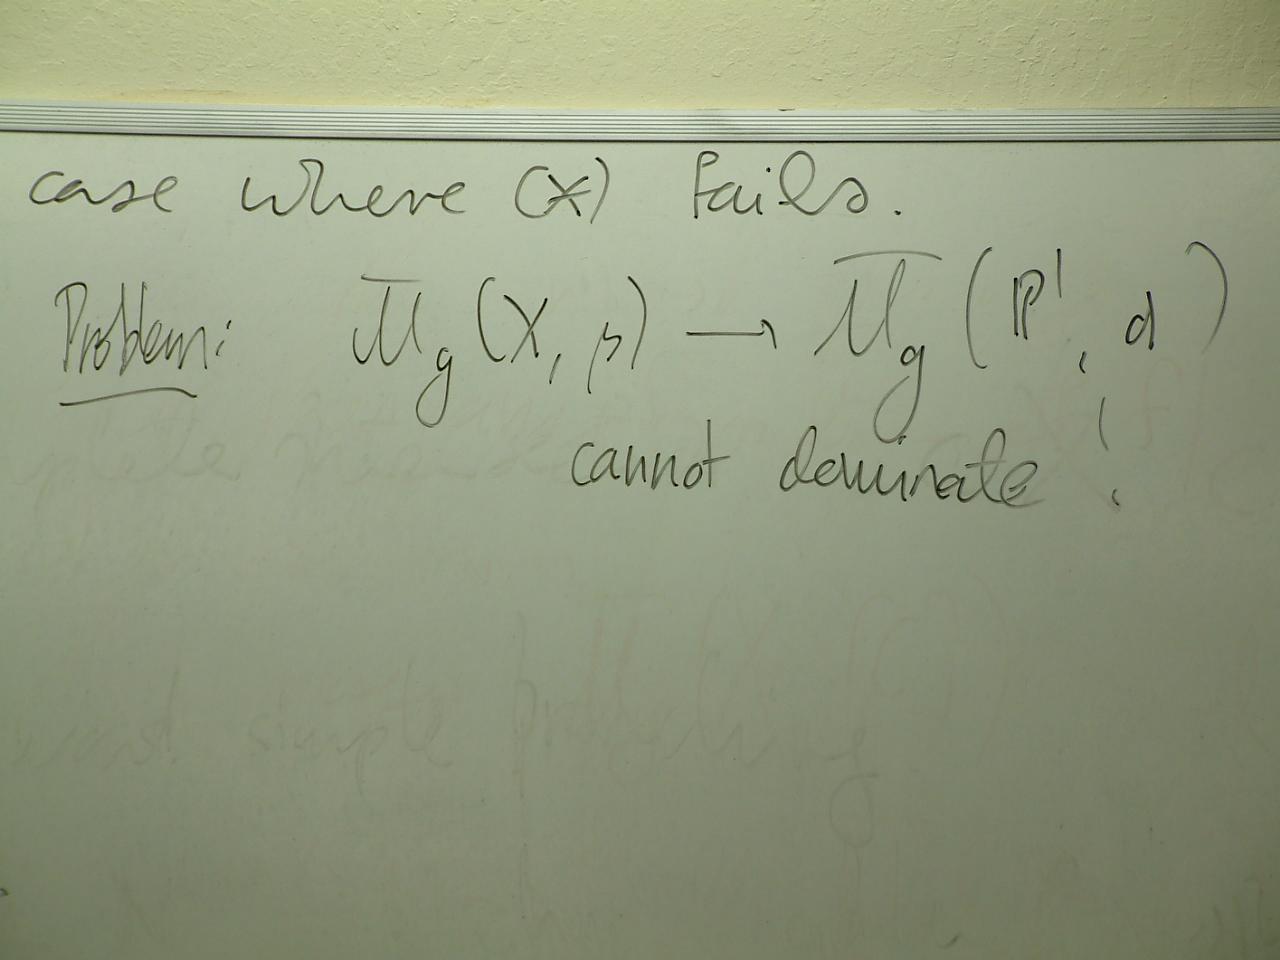 case where (*) fails.
Problem: M̅_g (X, β) → M̅_g (ℙ¹, d)
cannot dominate!